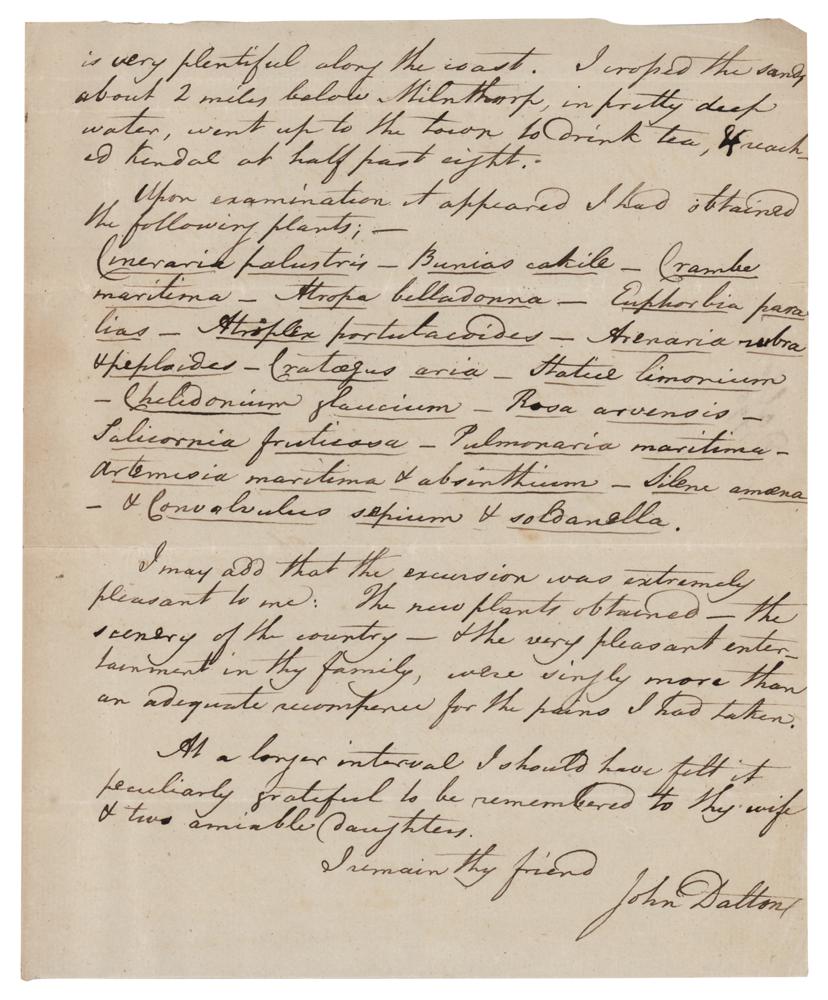 is very plentiful along the coast. I crossed the sands
about 2 miles below Milnthorp, in pretty deep
water, went up to the town to drink tea, & reach-
ed Kendal at half past eight.-
Upon examination it appeared I had obtained
the following plants; —
Cineraria palustris — Bunias cakile — Crambe
maritima — Atropa belladonna — Euphorbia para
lias — Atriplex portulacoides — Arenaria rubra
& peploides — Cratægus aria — Statice limonium
— Chelidonium glaucium — Rosa arvensis —
Salicornia fruticosa — Pulmonaria maritima —
Artemisia maritima & absinthium — Silene amæna
— & Convolvulus sepium & soldanella.
I may add that the excursion was extremely
pleasant to me: The new plants obtained — the
scenery of the country — & the very pleasant enter-
tainment in thy family, were singly more than
an adequate recompence for the pains I had taken.
At a longer interval I should have felt it
peculiarly grateful to be remembered to thy wife
& two amiable daughters.
I remain thy friend
John Dalton